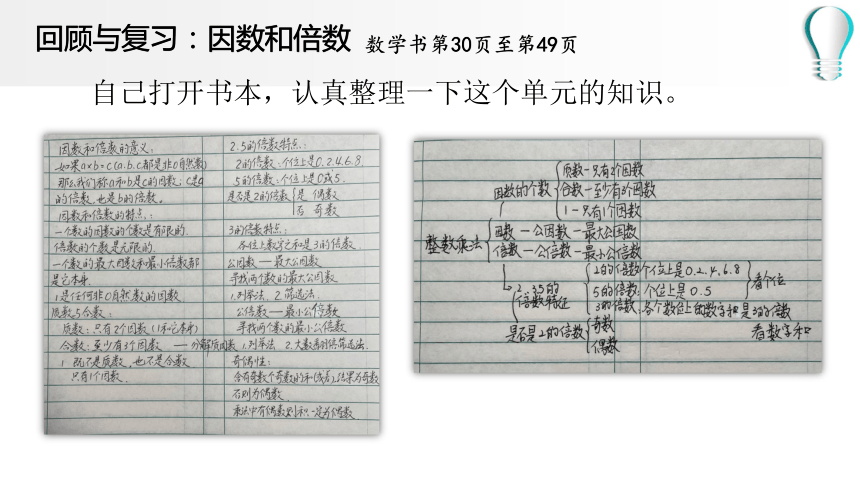 回顾与复习：因数和倍数 数学书第30页至第49页
自己打开书本，认真整理一下这个单元的知识。
因数和倍数的意义：
如果a×b=c(a.b.c都是非0自然数)
那么我们称a和b是c的因数，c是a
的倍数，也是b的倍数。
因数和倍数的特点：
一个数的因数的个数是有限的.
倍数的个数是无限的.
一个数的最大因数和最小倍数都
是它本身.
1是任何非0自然数的因数
质数与合数：
质数：只有2个因数（1和它本身）
合数：至少有3个因数 — 分解质因数
1 既不是质数，也不是合数
只有1个因数.
2.5的倍数特点：
2的倍数：个位上是0.2.4.6.8
5的倍数：个位上是0或5.
是否是2的倍数 是 偶数
否 奇数
3的倍数特点：
各位上数字之和是3的倍数
公因数 — 最大公因数
寻找两个数的最大公因数
1.列举法. 2.筛选法.
公倍数 — 最小公倍数
寻找两个数的最小公倍数
1.列举法. 2.大数翻倍筛选法.
奇偶性：
含有奇数个奇数的和(或差)结果为奇数
否则为偶数
乘法中有偶数则积一定为偶数
整数乘法
因数的个数
质数—只有2个因数
合数—至少有3个因数
1—只有1个因数
因数—公因数—最大公因数
倍数—公倍数—最小公倍数
2.3.5的
倍数特征
2的倍数：个位上是0.2.4.6.8
5的倍数：个位上是0.5
看个位
3的倍数：各个数位上的数字和是3的倍数
看数字和
是否是2的倍数
奇数
偶数